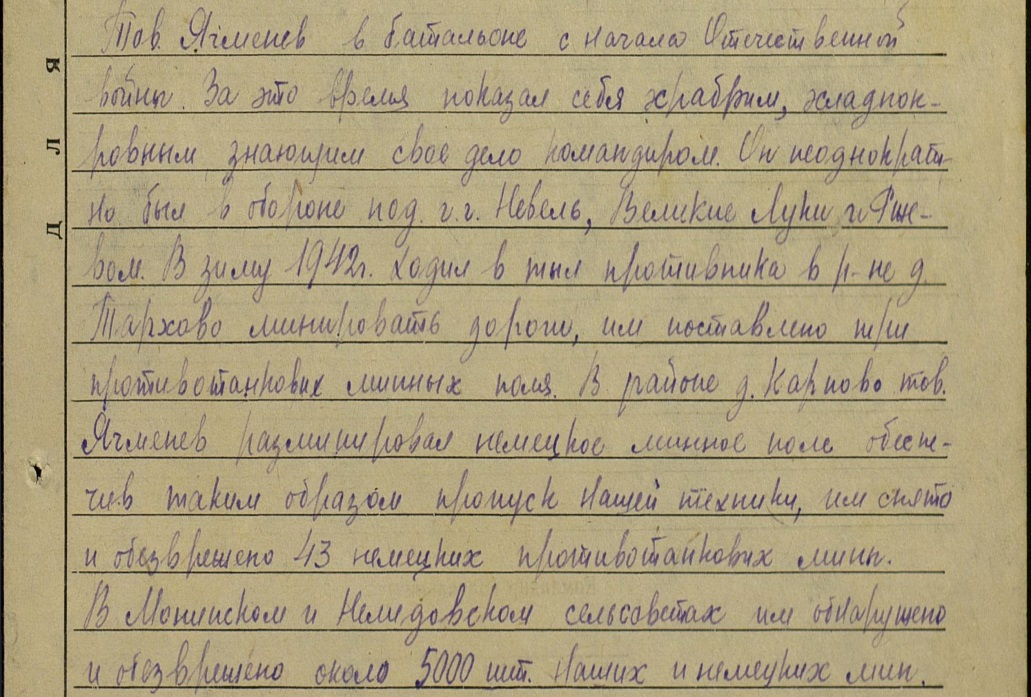 Тов. Ячменев в батальоне с начала Отечественной
войны. За это время показал себя храбрым, хладнок-
ровным знающим свое дело командиром. Он неоднократ-
но был в обороне под г.г. Невель, Великие Луки и Рже-
вом. В зиму 1942г. ходил в тыл противника в р-не д.
Тархово минировать дороги, им поставлено три
противотанковых минных поля. В районе д. Карпово тов.
Ячменев разминировал немецкое минное поле обеспе-
чив таким образом пропуск нашей техники, им снято
и обезврежено 43 немецких противотанковых мин.
В Монинском и Нелидовском сельсоветах им обнаружено
и обезврежено около 5000 шт. наших и немецких мин.
Д Л Я